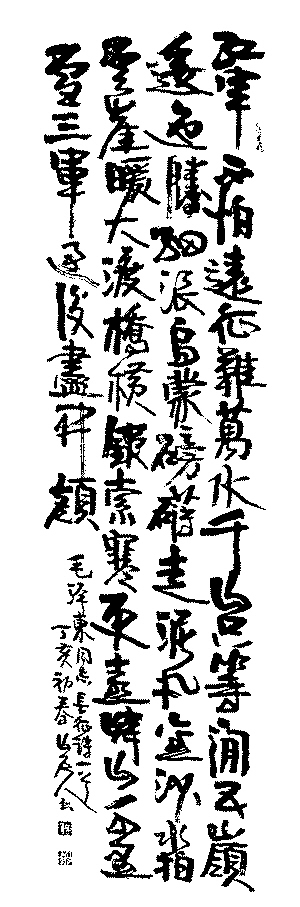 红军不怕遠征難萬水千山只等闲五嶺
逶迤腾细浪烏蒙磅礴走泥丸金沙水拍
雲崖暖大渡橋横鐵索寒更喜岷山千里
雪三軍過後盡开颜
毛泽東同志長征詩一首
丁亥初春